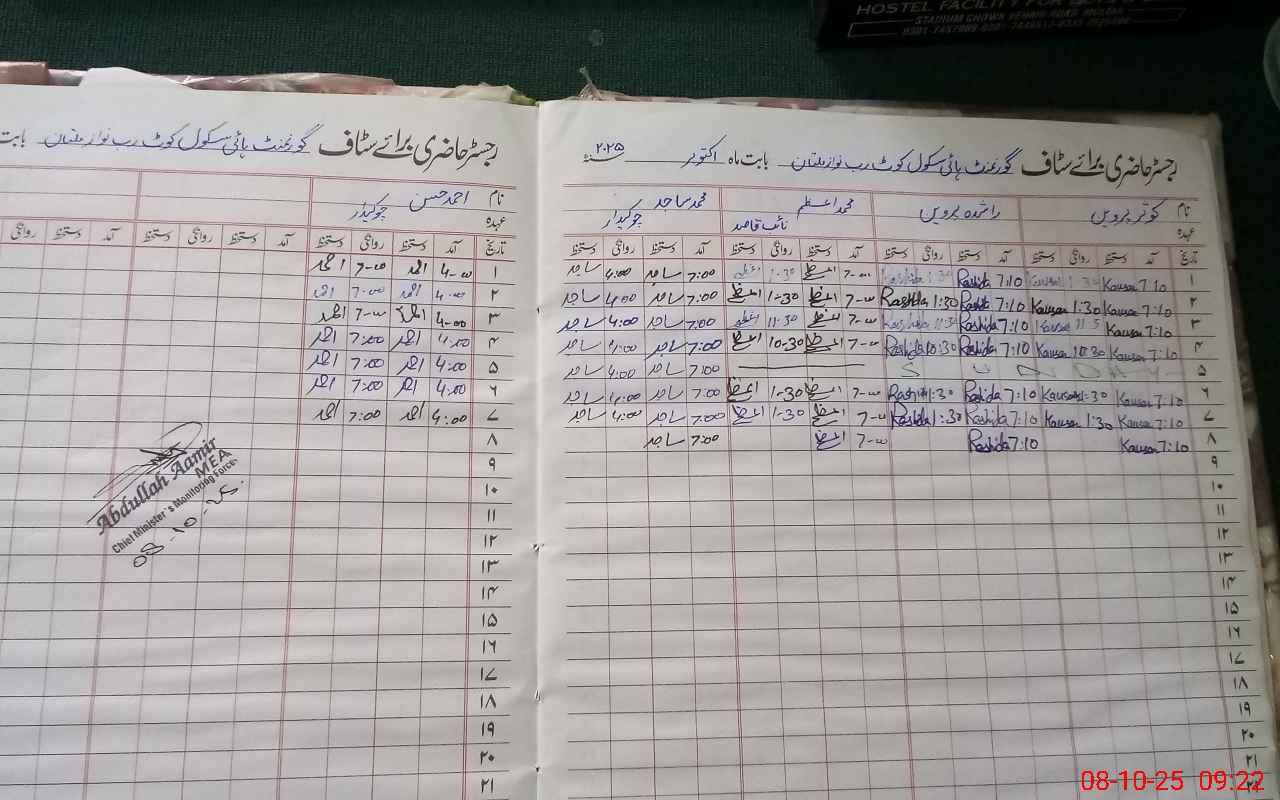 HOSTEL FACILITY FOR
STADIUM CHOWK
رجسٹر حاضری برائے سٹاف گورنمنٹ ہائی سکول کوٹ رب نواز ملتان بابت ماہ اکتوبر ۲۰۲۵
نام کوثر پروین راشدہ پروین محمد اعظم محمد ساجد
عہدہ نائب قاصد چوکیدار
تاریخ آمد دستخط روانگی دستخط آمد دستخط روانگی دستخط آمد دستخط روانگی دستخط آمد دستخط روانگی دستخط
۱ 7:10 Kausar 1:30 Kausar 7:10 Rashida 1:30 Rashida 7-00 اعظم 1-30 اعظم 7:00 ساجد 4:00 ساجد
۲ 7:10 Kausar 1:30 Kausar 7:10 Rashida 1:30 Rashida 7-00 اعظم 1-30 اعظم 7:00 ساجد 4:00 ساجد
۳ 7:10 Kausar Kausar 7:10 Rashida 11:30 Rashida 7-00 اعظم 11-30 اعظم 7:00 ساجد 4:00 ساجد
۴ 7:10 Kausar 10:30 Kausar 7:10 Rashida 10:30 Rashida 7-00 اعظم 10-30 اعظم 7:00 ساجد 4:00 ساجد
۵ S U N D A Y 7:00 ساجد 4:00 ساجد
۶ 7:10 Kausar 1:30 Kausar 7:10 Rashida 1:30 Rashida 7-00 اعظم 1-30 اعظم 7:00 ساجد 4:00 ساجد
۷ 7:10 Kausar 1:30 Kausar 7:10 Rashida 1:30 Rashida 7-00 اعظم 1-30 اعظم 7:00 ساجد 4:00 ساجد
۸ 7:10 Kausar 7:10 Rashida 7-00 اعظم 7:00 ساجد
۹
۱۰
۱۱
۱۲
۱۳
۱۴
۱۵
۱۶
۱۷
۱۸
۱۹
۲۰
۲۱
رجسٹر حاضری برائے سٹاف گورنمنٹ ہائی سکول کوٹ رب نواز ملتان بابت
نام احمد حسن
عہدہ چوکیدار
تاریخ آمد دستخط روانگی دستخط آمد دستخط روانگی دستخط آمد دستخط روانگی
۱ 4-00 احمد 7-00 احمد
۲ 4-00 احمد 7-00 احمد
۳ 4-00 احمد 7-00 احمد
۴ 4:00 احمد 7:00 احمد
۵ 4:00 احمد 7:00 احمد
۶ 4:00 احمد 7:00 احمد
۷ 4:00 احمد 7:00 احمد
۸
۹
۱۰
۱۱
۱۲
۱۳
۱۴
۱۵
۱۶
۱۷
۱۸
۱۹
۲۰
۲۱
Abdullah Aamir
MEA
Chief Minister's Monitoring Force
08-10-25
08-10-25 09:22